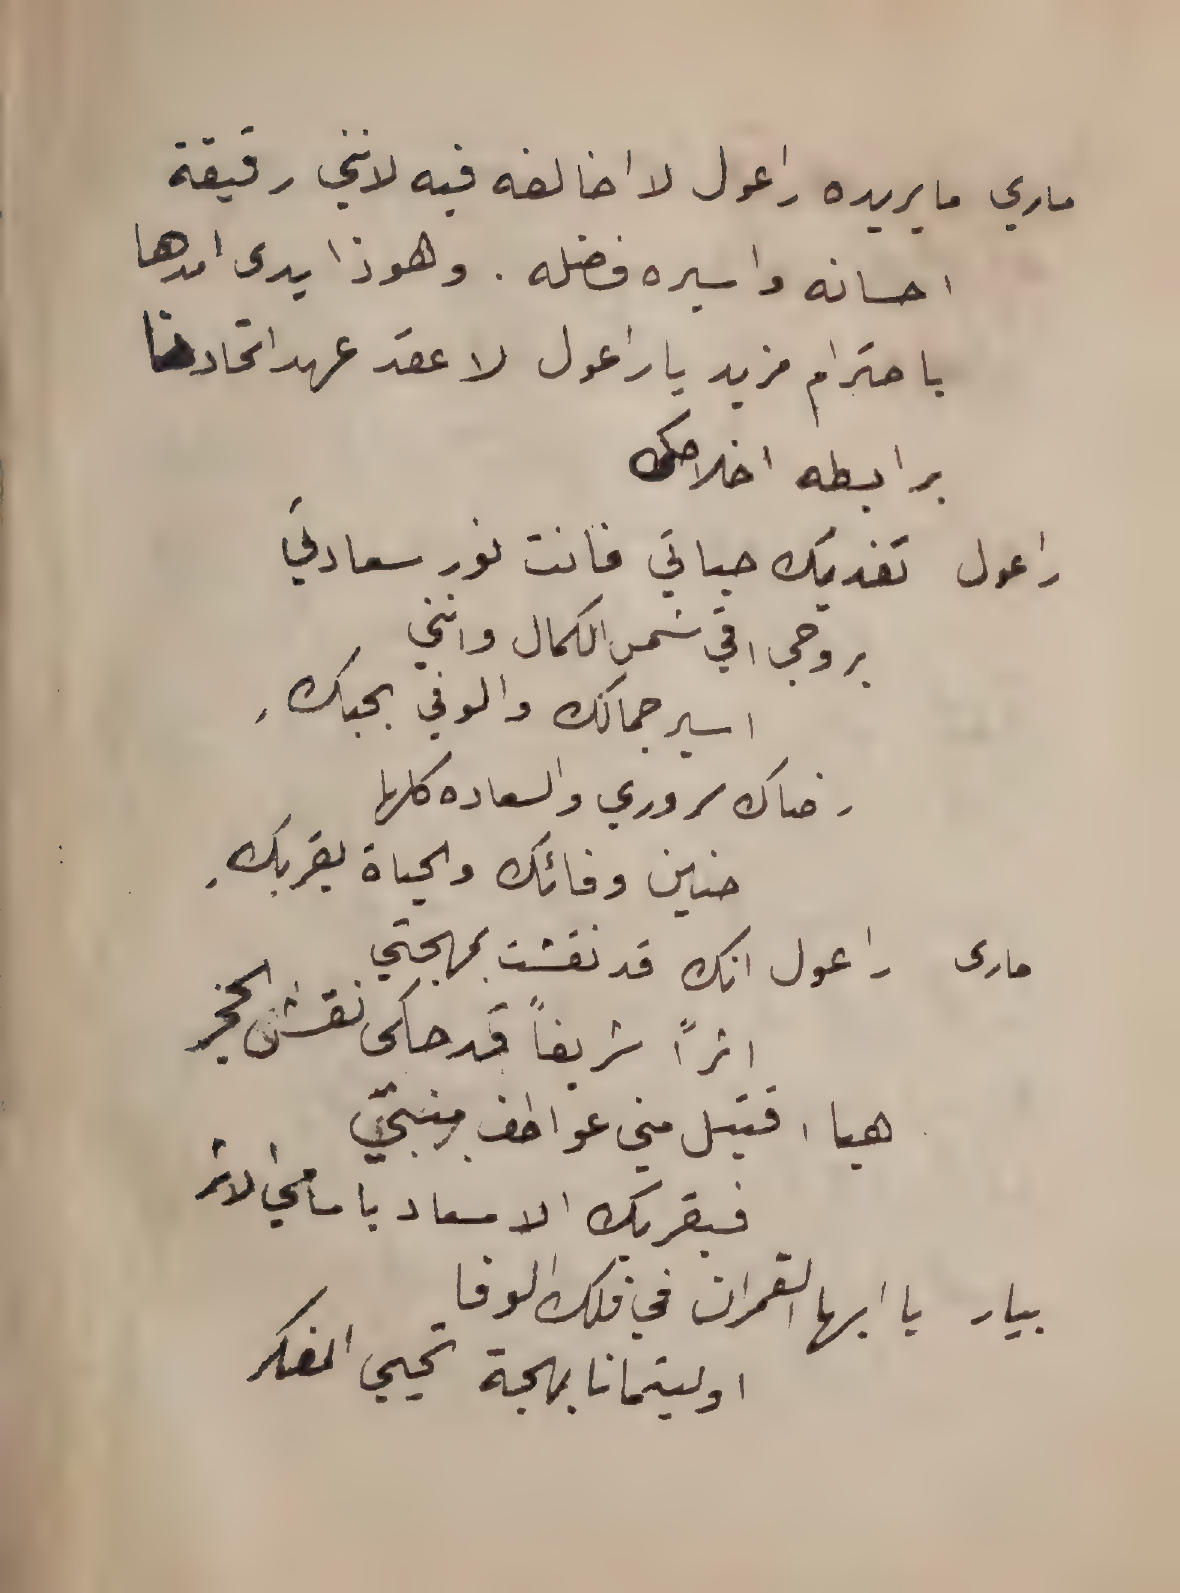 ماري ما يريده راعول لا اخالفه فيه لانني رقيقة
احسانه واسيره فضله . وهوذا يدى امدها
باحترام مزيد يا راعول لاعقد عهد اتحادنا
برابطه اخلاصك
راعول تفديك حياتي فانت نور سعادتي
بروحي اقي شمس الكمال وانني
اسير جمالك والوفي بحبك
رضاك سروري والسعاده كلها
حنين وفائك والحياة بقربك
مارى راعول انك قد نقشت بمهجتي
اثراً شريفاً قد حاكى نقش الحجر
هيا اقتبل مني عواطف
فبقربك الاسعاد يا سامي الاثر
بيار يا ايها القمران في فلك الوفا
اوليتمانا بهجة تحيي الفكر